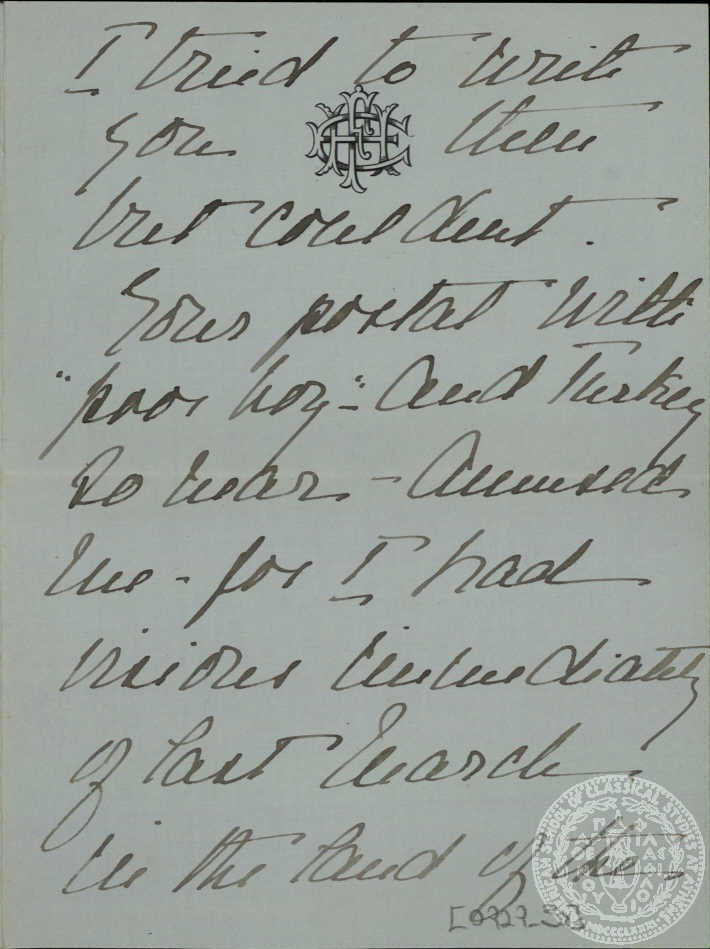 I tried to write
you then
but couldn't.
Your postal with
"poor boy" - and Turkey
so near - amused
me - for I had
visions immediately
of last March
in the land of the